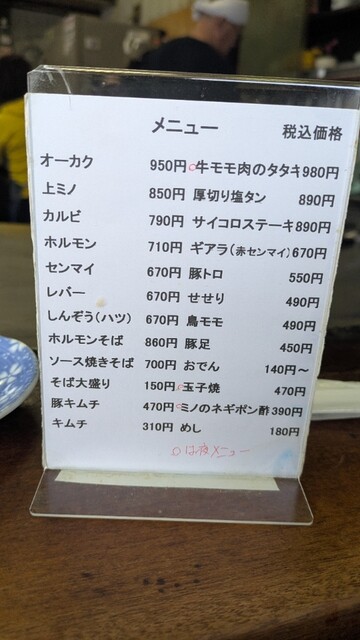 メニュー 税込価格
オーカク 950円 ○牛モモ肉のタタキ 980円
上ミノ 850円 厚切り塩タン 890円
カルビ 790円 サイコロステーキ 890円
ホルモン 710円 ギアラ(赤センマイ) 670円
センマイ 670円 豚トロ 550円
レバー 670円 せせり 490円
しんぞう(ハツ) 670円 鳥モモ 490円
ホルモンそば 860円 豚足 450円
ソース焼きそば 700円 おでん 140円～
そば大盛り 150円 ○玉子焼 470円
豚キムチ 470円 ○ミノのネギポン酢 390円
キムチ 310円 めし 180円
○は夜メニュー